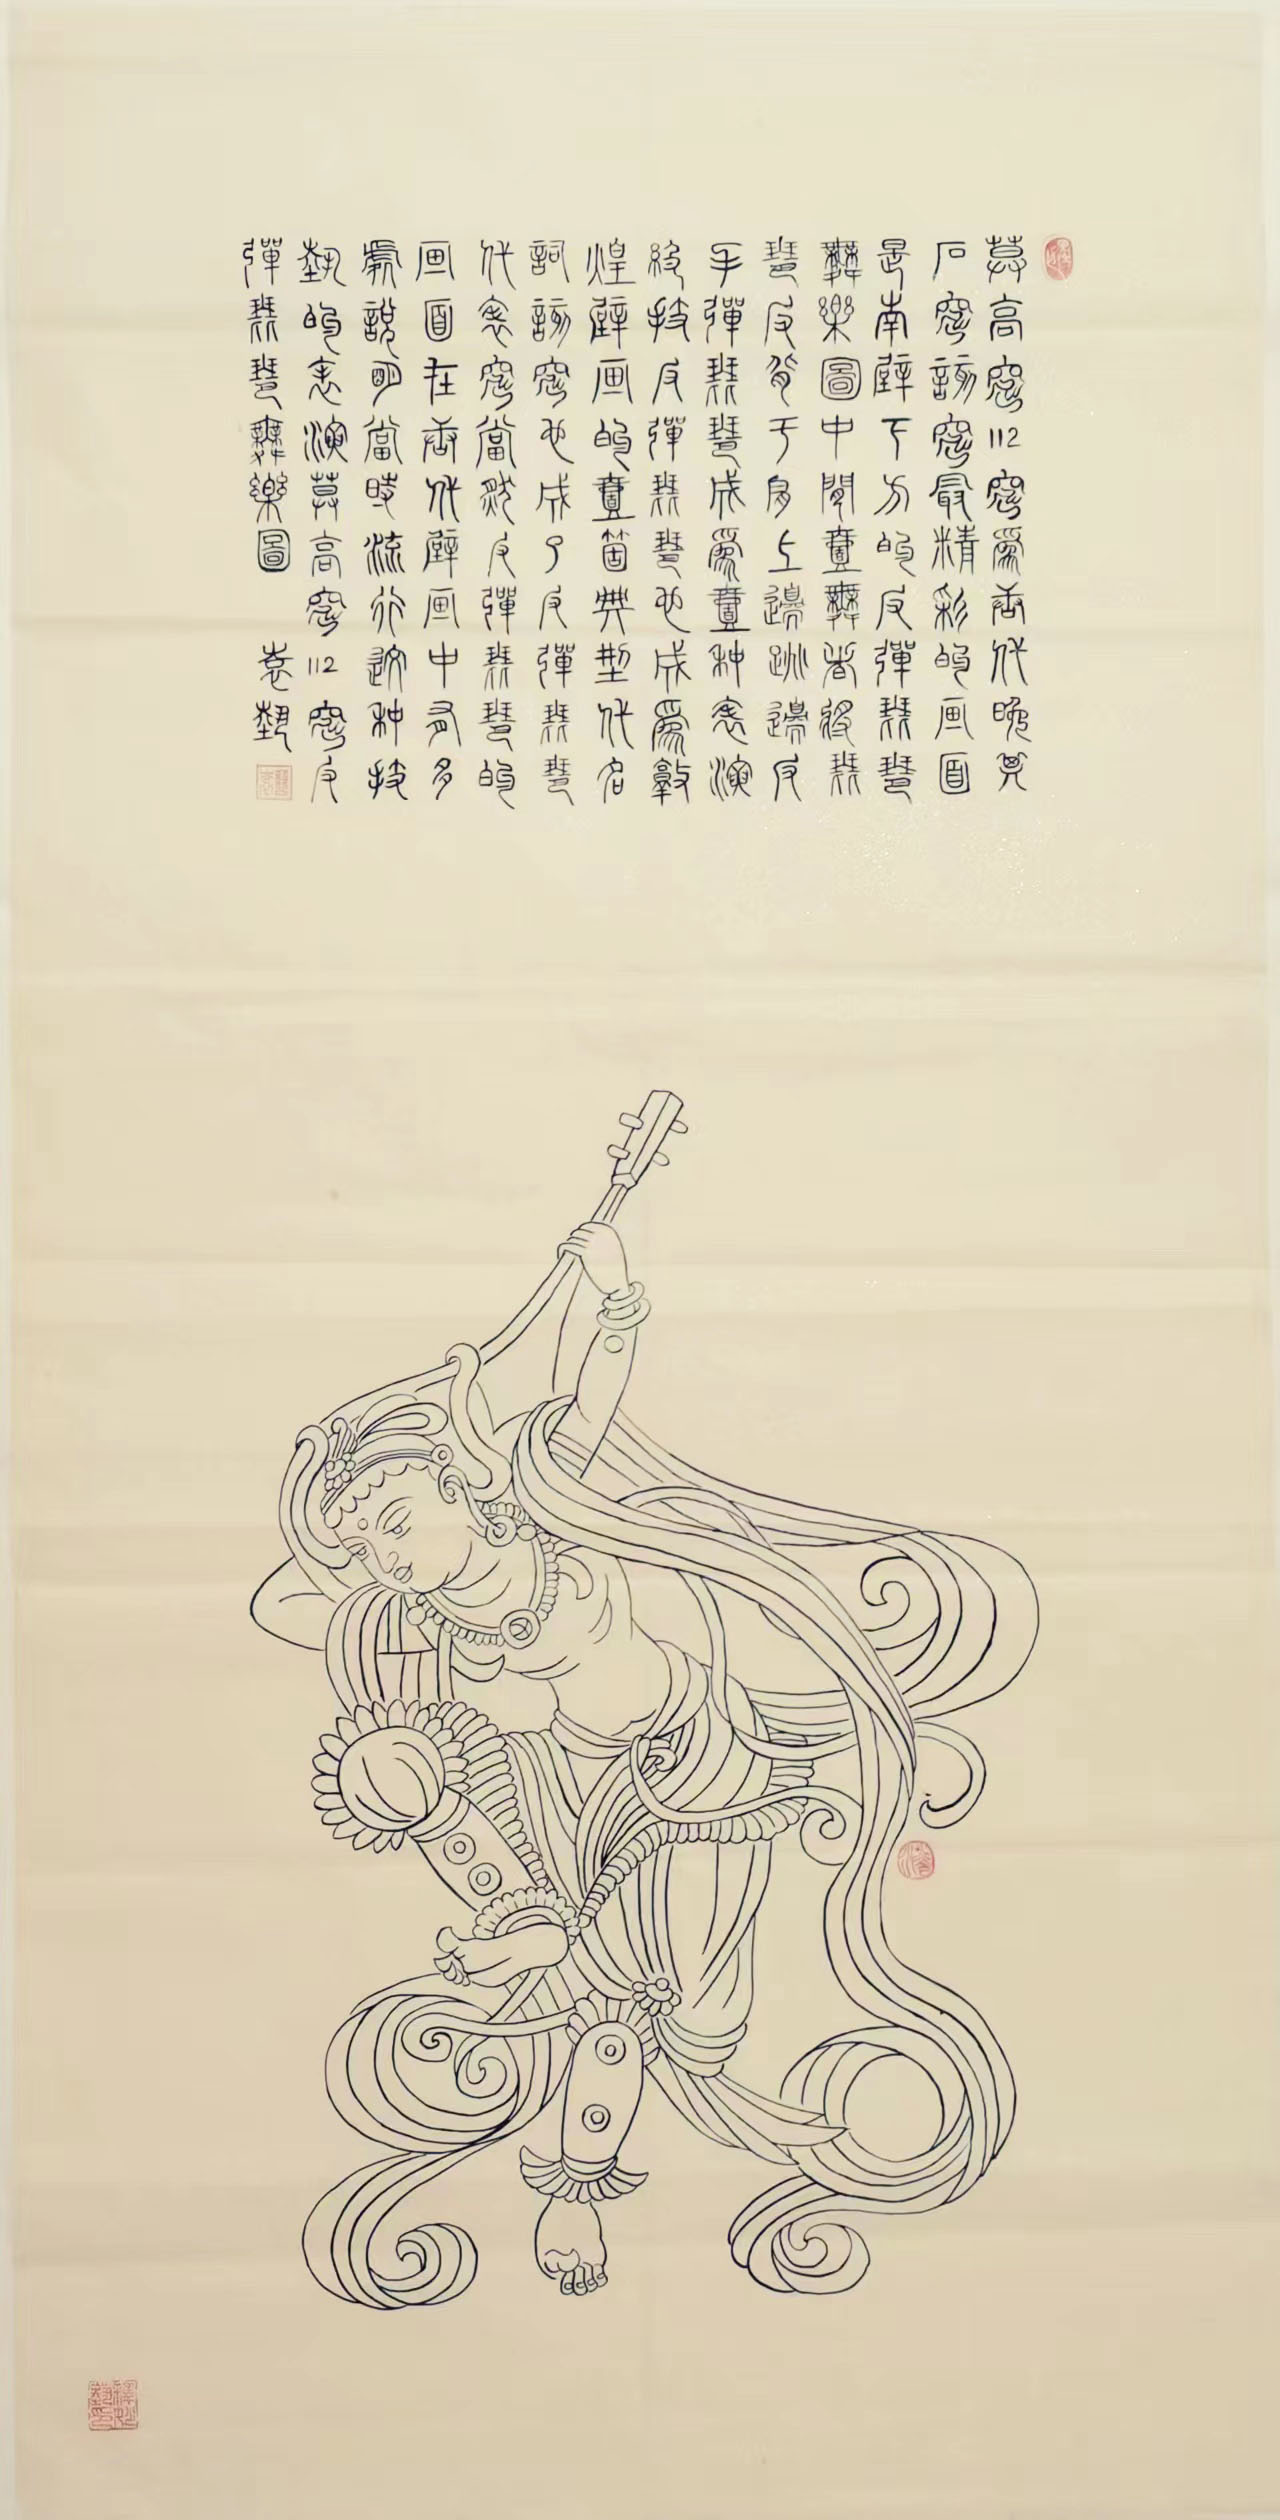 莫高窟112窟為唐代晚期
石窟該窟最精彩的画面
是南壁下方的反彈琵琶
舞樂圖中間壹舞者將琵
琶反背于身上邊跳邊反
手彈琵琶成為壹种表演
絕技反彈琵琶也成為敦
煌壁画的壹箇典型代名
詞該窟也成了反彈琵琶
代表窟當然反彈琵琶的
画面在唐代壁画中有多
處說明當時流行這种技
藝的表演莫高窟112窟反
彈琵琶舞樂圖
袁藝